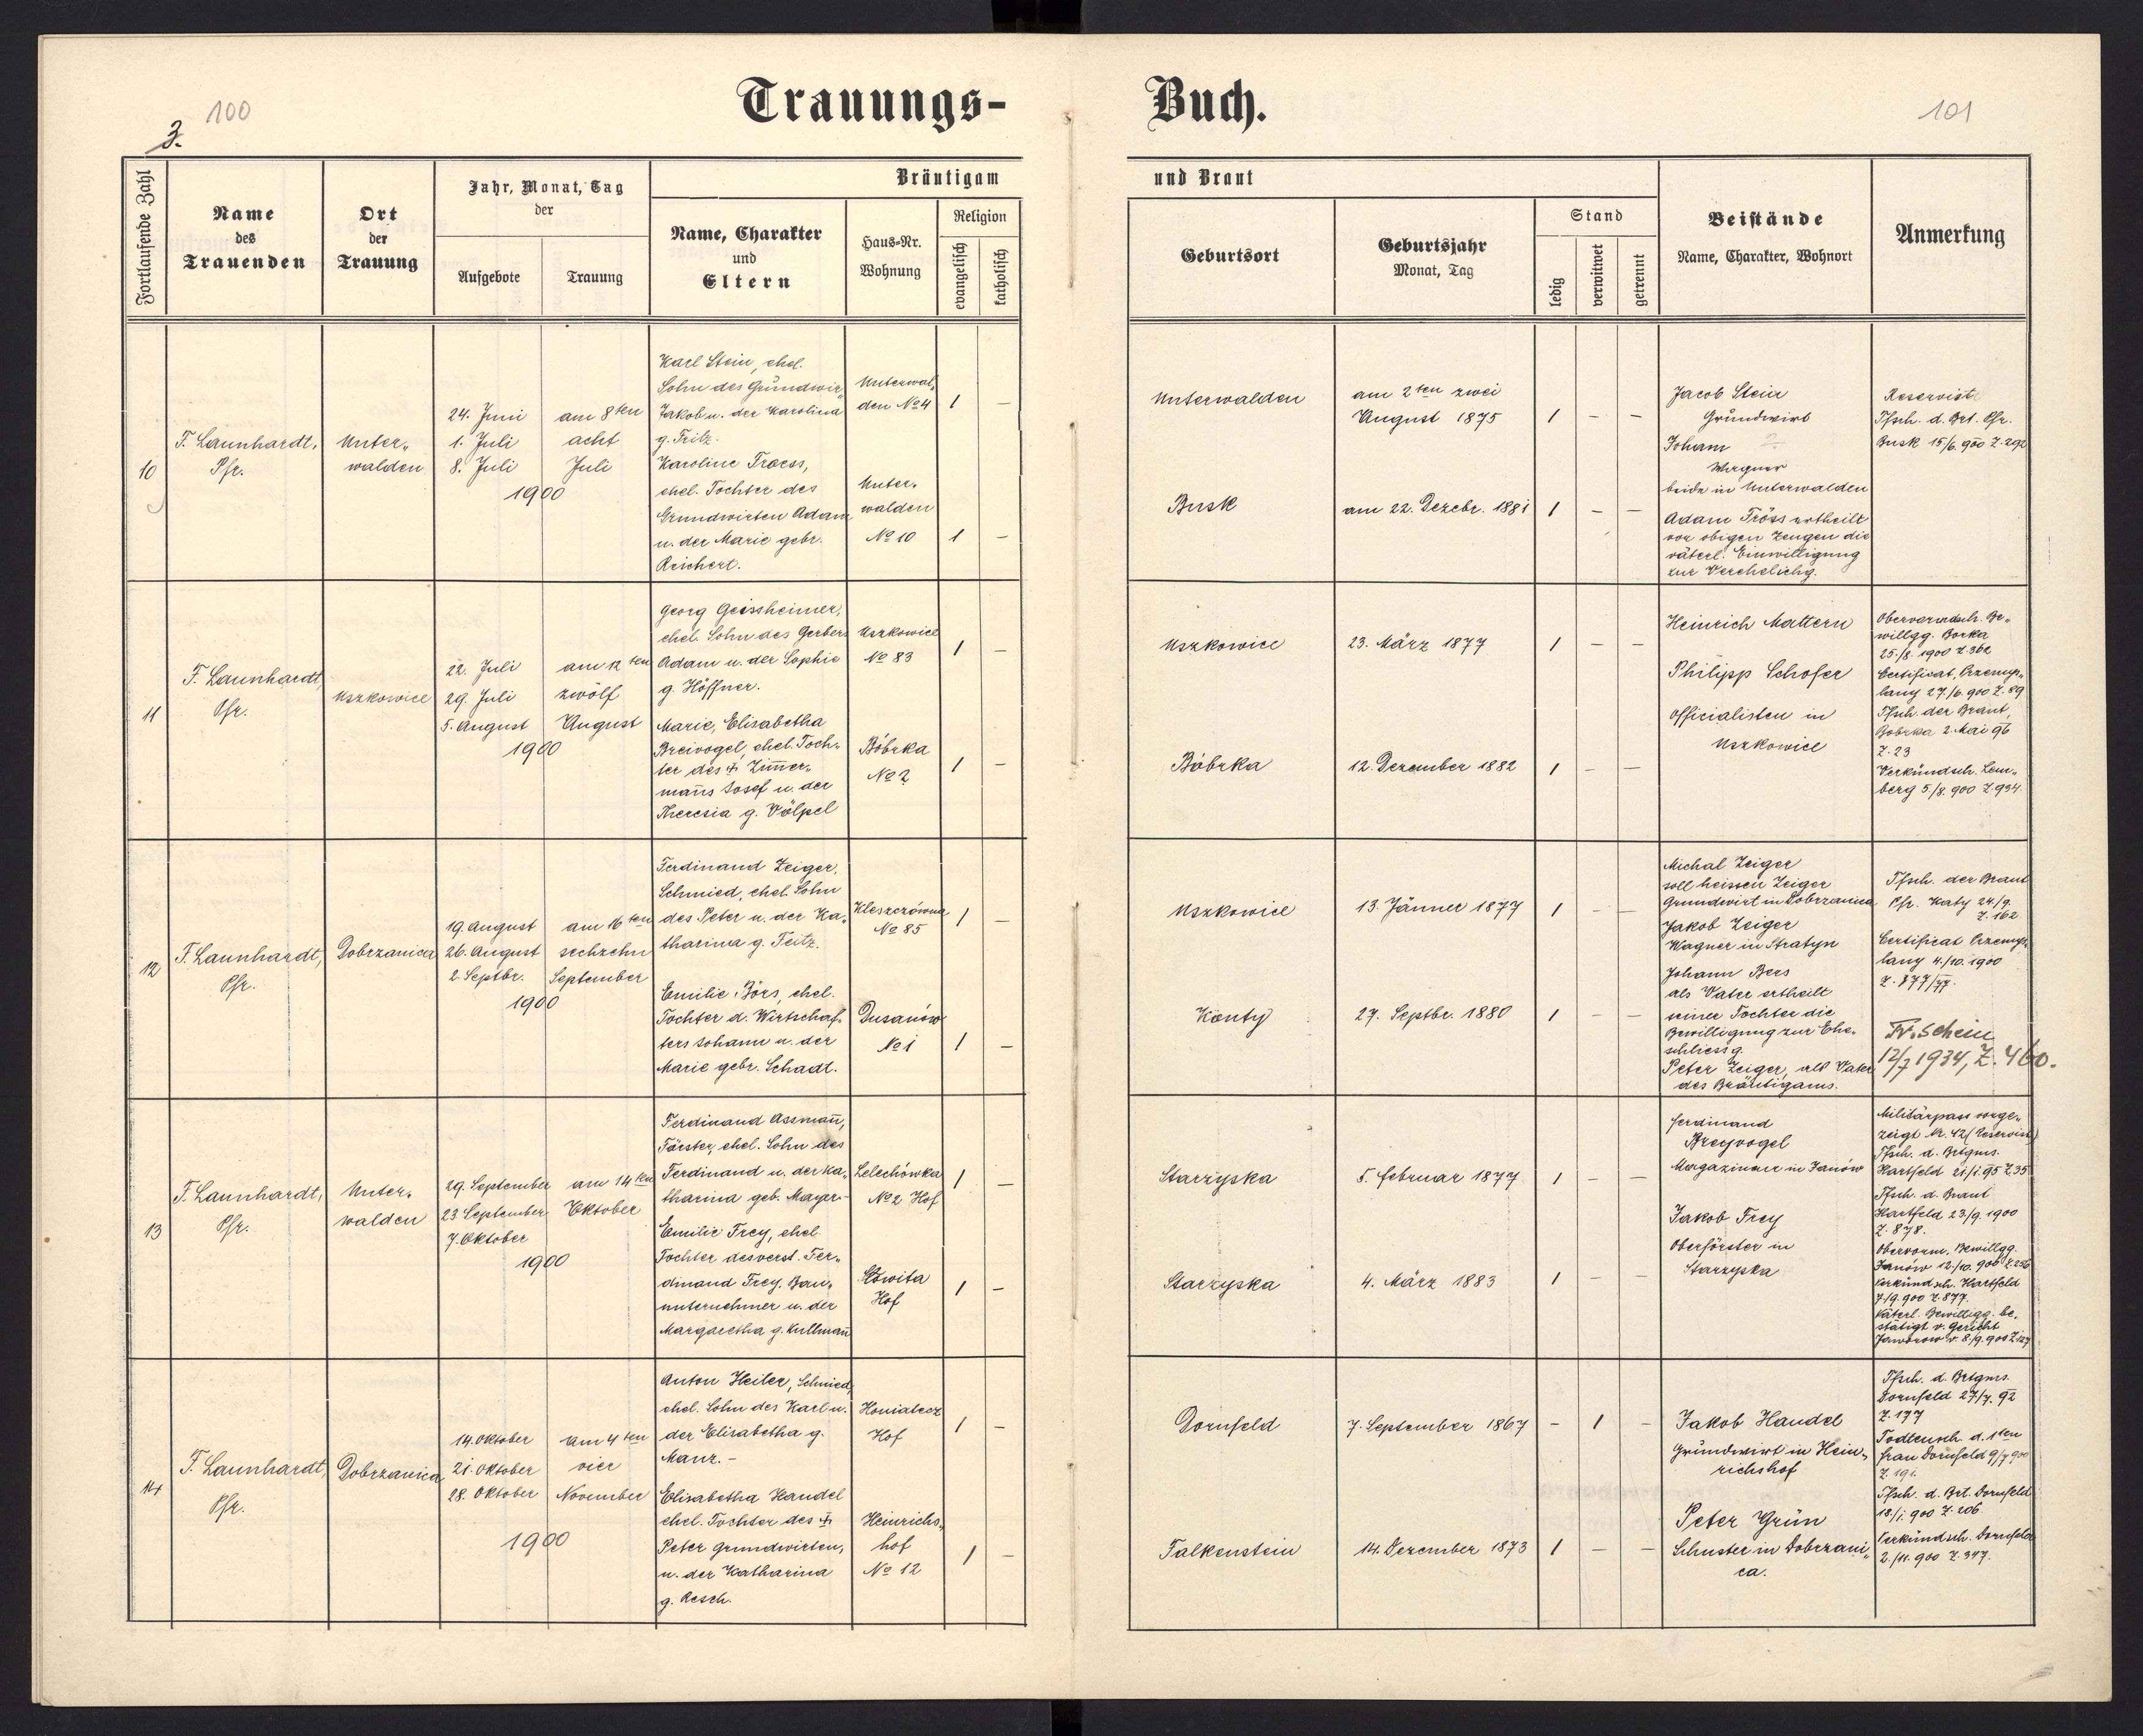 100
3.
Trauungs-
Buch.
101
Fortlaufende Zahl
Name
des
Trauenden
Ort
der
Trauung
Jahr, Monat, Tag
der
Aufgebote
Trauung
Bräutigam
Name, Charakter
und
Eltern
Haus-Nr.
Wohnung
Religion
evangelisch
katholisch
und Braut
Geburtsort
Geburtsjahr
Monat, Tag
Stand
ledig
verwitwet
getrennt
Beistände
Name, Charakter, Wohnort
Anmerkung
10
F. Launhardt,
Pfr.
Unter„
walden
24. Juni
1. Juli
8. Juli
am 8ten
acht
Juli
1900
Karl Stein, ehel.
Sohn des Grundwir„
Jakob u. der Karolina
g. Fritz.
Unterwal„
den No 4
1 –
Karoline Troess,
ehel. Tochter des
Grundwirten Adam
u. der Marie gebr.
Reichert.
Unter„
walden
No 10
1 –
Unterwalden
am 2ten zwei
August 1875
1 – –
Busk
am 22. Dezebr. 1881
1 – –
Jacob Stein
Grundwirt
Johann
Wagner
beide in Unterwalden
Adam Tröss ertheilt
vor obigen Zeugen die
väterl. Einwilligung
zur Verehelichg.
Reservist
Tfsch. d. Brt. Pfr.
Busk 15/6. 900 Z. 292
11
F. Launhardt,
Pfr.
Uszkowice
22. Juli
29. Juli
5. August
am 12ten
zwölf
August
1900
Georg Geissheimer,
ehel. Sohn des Gerbers
Adam u. der Sophie
g. Höffner.
Uszkowice
No 83
1 –
Marie, Elisabetha
Breivogel, ehel. Toch„
ter des † Zimer„
mans Josef u. der
Theresia g. Völpel
Bóbrka
No 2
1 –
Uszkowice
23. März 1877
1 – –
Bóbrka
12. Dezember 1882
1 – –
Heinrich Mattern
Philipp Schofer
Officialisten in
Uszkowice
Obervormdsch. Be„
willgg. Borka
25./8. 1900 Z. 362
Certificat, Przemys„
lany 27./6. 900 Z. 89
Tfsch. der Braut,
Bobrka 2. Mai 96
Z. 23
Verkündsch. Lem„
berg 5./8. 900 Z. 934.
12
F. Launhardt,
Pfr.
Dobrzanica
19. August
26. August
2. Septbr.
am 16ten
sechzehn
September
1900
Ferdinand Zeiger,
Schmied, ehel. Sohn
des Peter u. der Ka„
tharina g. Fritz.
Kleszczówna
No 85
1 –
Emilie Börs, ehel.
Tochter d. Wirtschaf„
ters Johann u. der
Marie gebr. Schadt.
Dusanów
No 1
1 –
Uszkowice
13. Jänner 1877
1 – –
Kąty
27. Septbr. 1880
1 – –
Michal Zeiger
soll heissen Zeiger
Grundwirt in Dobrzanica
Jakob Zeiger
Wagner in Stratyn
Johann Bers
als Vater ertheilt
seiner Tochter die
Bewilligung zur Ehe„
schliessg.
Peter Zeiger, als Vater
des Bräutigams.
Tfsch. der Braut
Pfr. Katy 24/9.
Z. 162
Certificat Przemys„
lany 4./10. 1900
Z. 877/77.
Tr. schein
12/7 1934, Z. 460.
13
F. Launhardt,
Pfr.
Unter„
walden
29. September
23 September
7. Oktober
am 14ten
Oktober
1900
Ferdinand Assman,
Förster, ehel. Sohn des
Ferdinand u. der Ka„
tharina geb. Mayer –
Lelechówka
No 2 Hof
1 –
Emilie Frey, ehel.
Tochter des verst. Fer„
dinand Frey, Bau„
unternehmer u. der
Margaretha g. Kullman
Słowita
Hof
1 –
Starzyska
5. Februar 1877
1 – –
Starzyska
4. März 1883
1 – –
Ferdinand
Breyvogel
Magazineur in Janów
Jakob Frey
Oberförster in
Starzyska
Militärpass vorge„
zeigt Nr. 42 (Reservist)
Tfsch. d. Brtgms.
Hartfeld 21/1. 95 Z. 35
Tfsch. d. Braut
Hartfeld 23/9. 1900
Z. 878.
Obervorm. Bewillgg.
Janów 12./10. 900 Z. 256
Verkündsch. Hartfeld
7/9. 900 Z. 877.
Väterl. Bewilligg. be„
stätigt v. Gericht
Jaworow v. 8/9. 900
14
F. Launhardt,
Pfr.
Dobrzanica
14. Oktober
21. Oktober
28. Oktober
am 4ten
vier
November
1900
Anton Heiler, Schmied,
ehel. Sohn des Karl u.
der Elisabetha g.
Manz. –
Honiatycz
Hof
1 –
Elisabetha Handel
ehel. Tochter des †
Peter Grundwirten,
u. der Katharina
g. Resch.
Heinrichs„
hof
No 12
1 –
Dornfeld
7. September 1867
– 1 –
Falkenstein
14. Dezember 1873
1 – –
Jakob Handel
Grundwirt in Hein„
richshof
Peter Grün
Schuster in Dobrzani„
ca.
Tfsch. d. Brtgms.
Dornfeld 27/7. 92
Z. 177
Todtensch. d. 1ten
Frau Dornfeld 9/7 900
Z. 191.
Tfsch. d. Brt. Dornfeld
18/1. 900 Z. 206
Verkündsch. Dornfeld
2./11. 900 Z. 347.